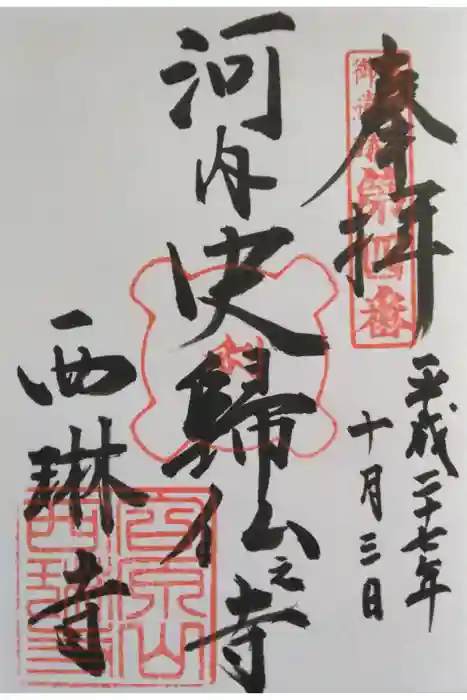 奉拝
第四番
平成二十七年
十月三日
河内史歸仏之寺
西琳寺
向原山
西琳寺